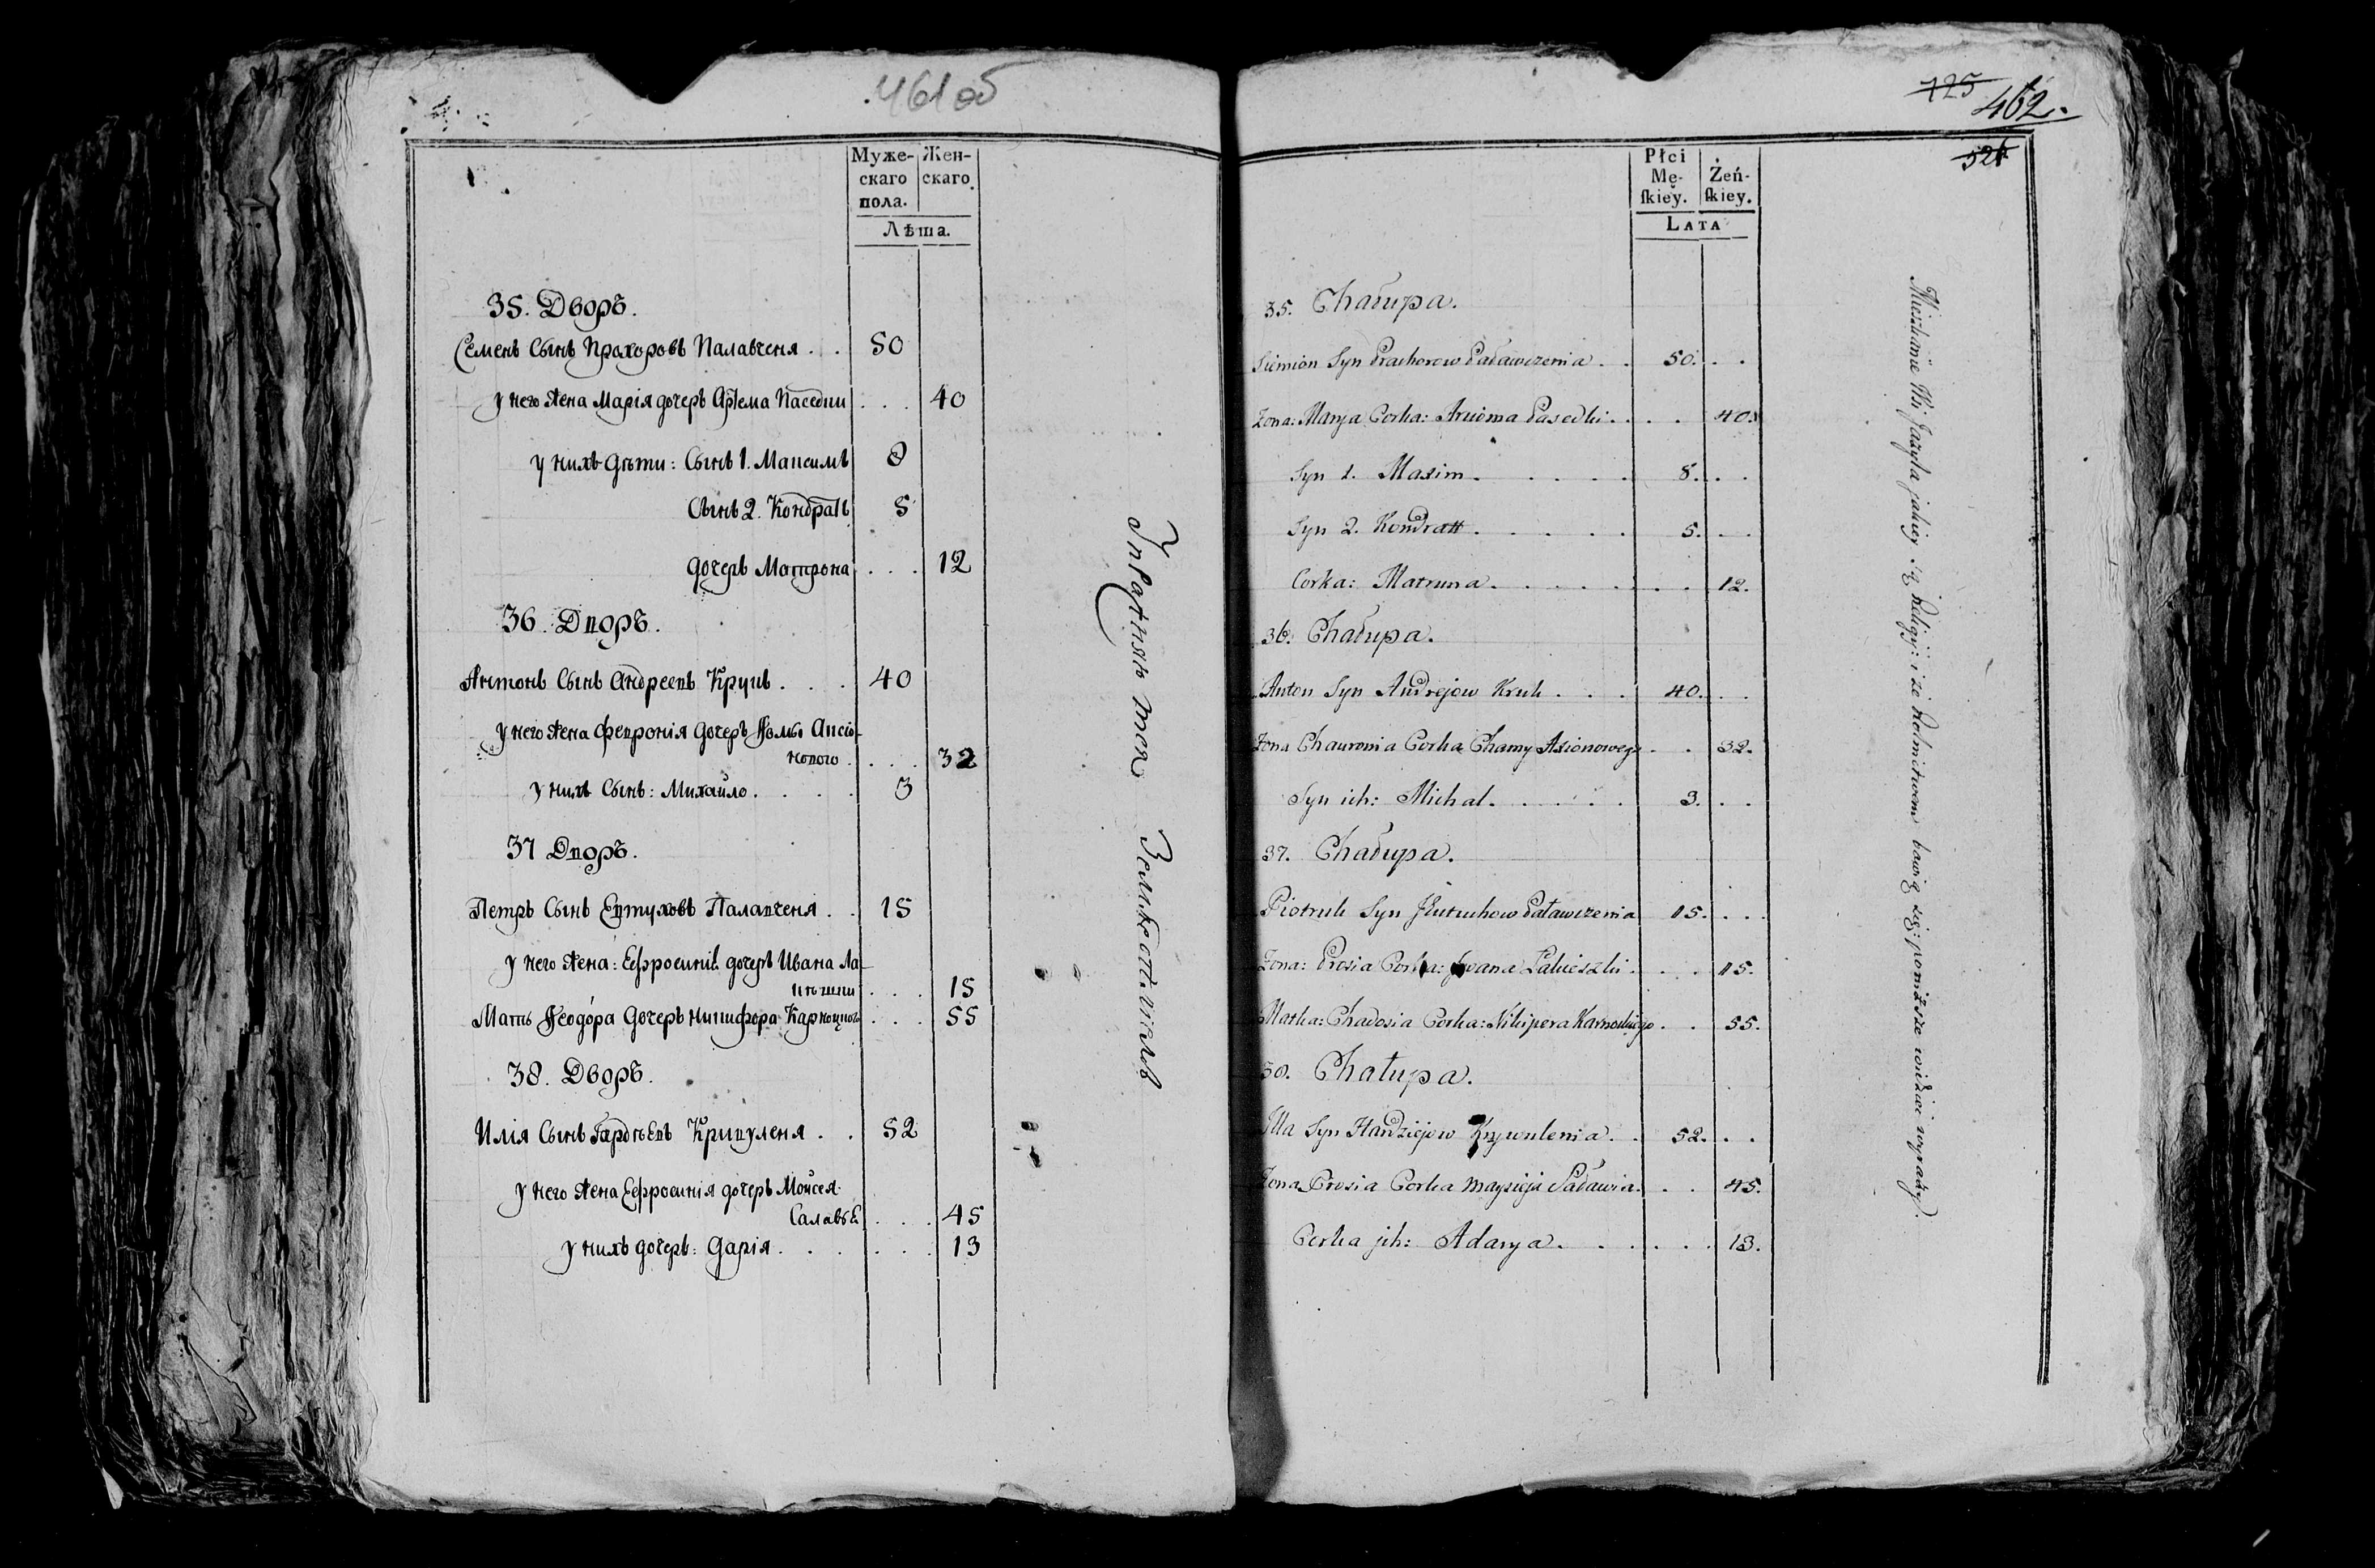 461 об
Муже-
скаго
пола.
Жен-
скаго.
Лѣта.
35. Дворъ.
Семенъ Сынъ Прохоровъ Палавченя . . 50
у него жена Марія дочерь Артема Паседки . . . 40
у нихъ дѣти: Сынъ 1. Максимъ 8
Сынъ 2. Кондратъ 5
дочерь Матрона . . . 12
36. Дворъ.
Антонъ Сынъ Андреевъ Крукъ . . . 40
у него жена Февронія дочерь Фомы Аксіо-
нового . . . . 32
у нихъ Сынъ: Михайло . . . . 3
37 Дворъ.
Петръ Сынъ Евтуховъ Палавченя . . 15
у него жена: Ефросинія дочерь Ивана Ла-
кѣшки . . . 15
Мать Феодора дочерь Никифора Карноцкого . . . 55
38. Дворъ.
Илія Сынъ Гардѣевъ Кривуленя . . 52
у него жена Ефросинія дочерь Мойсея
Салавьѣ . . . 45
у нихъ дочерь: Дарія . . . . . . 13
125
462.
521
Płci
Mę-
ſkiey.
Żeń-
ſkiey.
LATA
35. Chałupa.
Siemion Syn Prachorow Paławczenia . . 50. . .
Żona: Marya Corka: Arcioma Pasedki . . . . 40.
Syn 1. Maxim . . . . . 8. . .
Syn 2. Kondratt . . . . . 5. . .
Corka: Matruna . . . . . . . 12.
36. Chałupa.
Anton Syn Andrejow Kruk . . . 40. . .
Żona Chauronia Corka Chamy Axionowego . . 32.
Syn ich: Michał . . . . . 3. . .
37. Chałupa.
Piotruk Syn Jeutuchow Paławczenia 15. . . .
Żona: Prosia Corka: Jwana Łakieszki . . . 15.
Matka: Chadosia Corka: Nikipera Karnockiego . . 55.
38. Chałupa.
Illa Syn Hardziejow Krywulenia . . 52. . .
Żona Prosia Corka Mayzieja Saławia . . . 45.
Corka jch: Adarya . . . . . . 13.